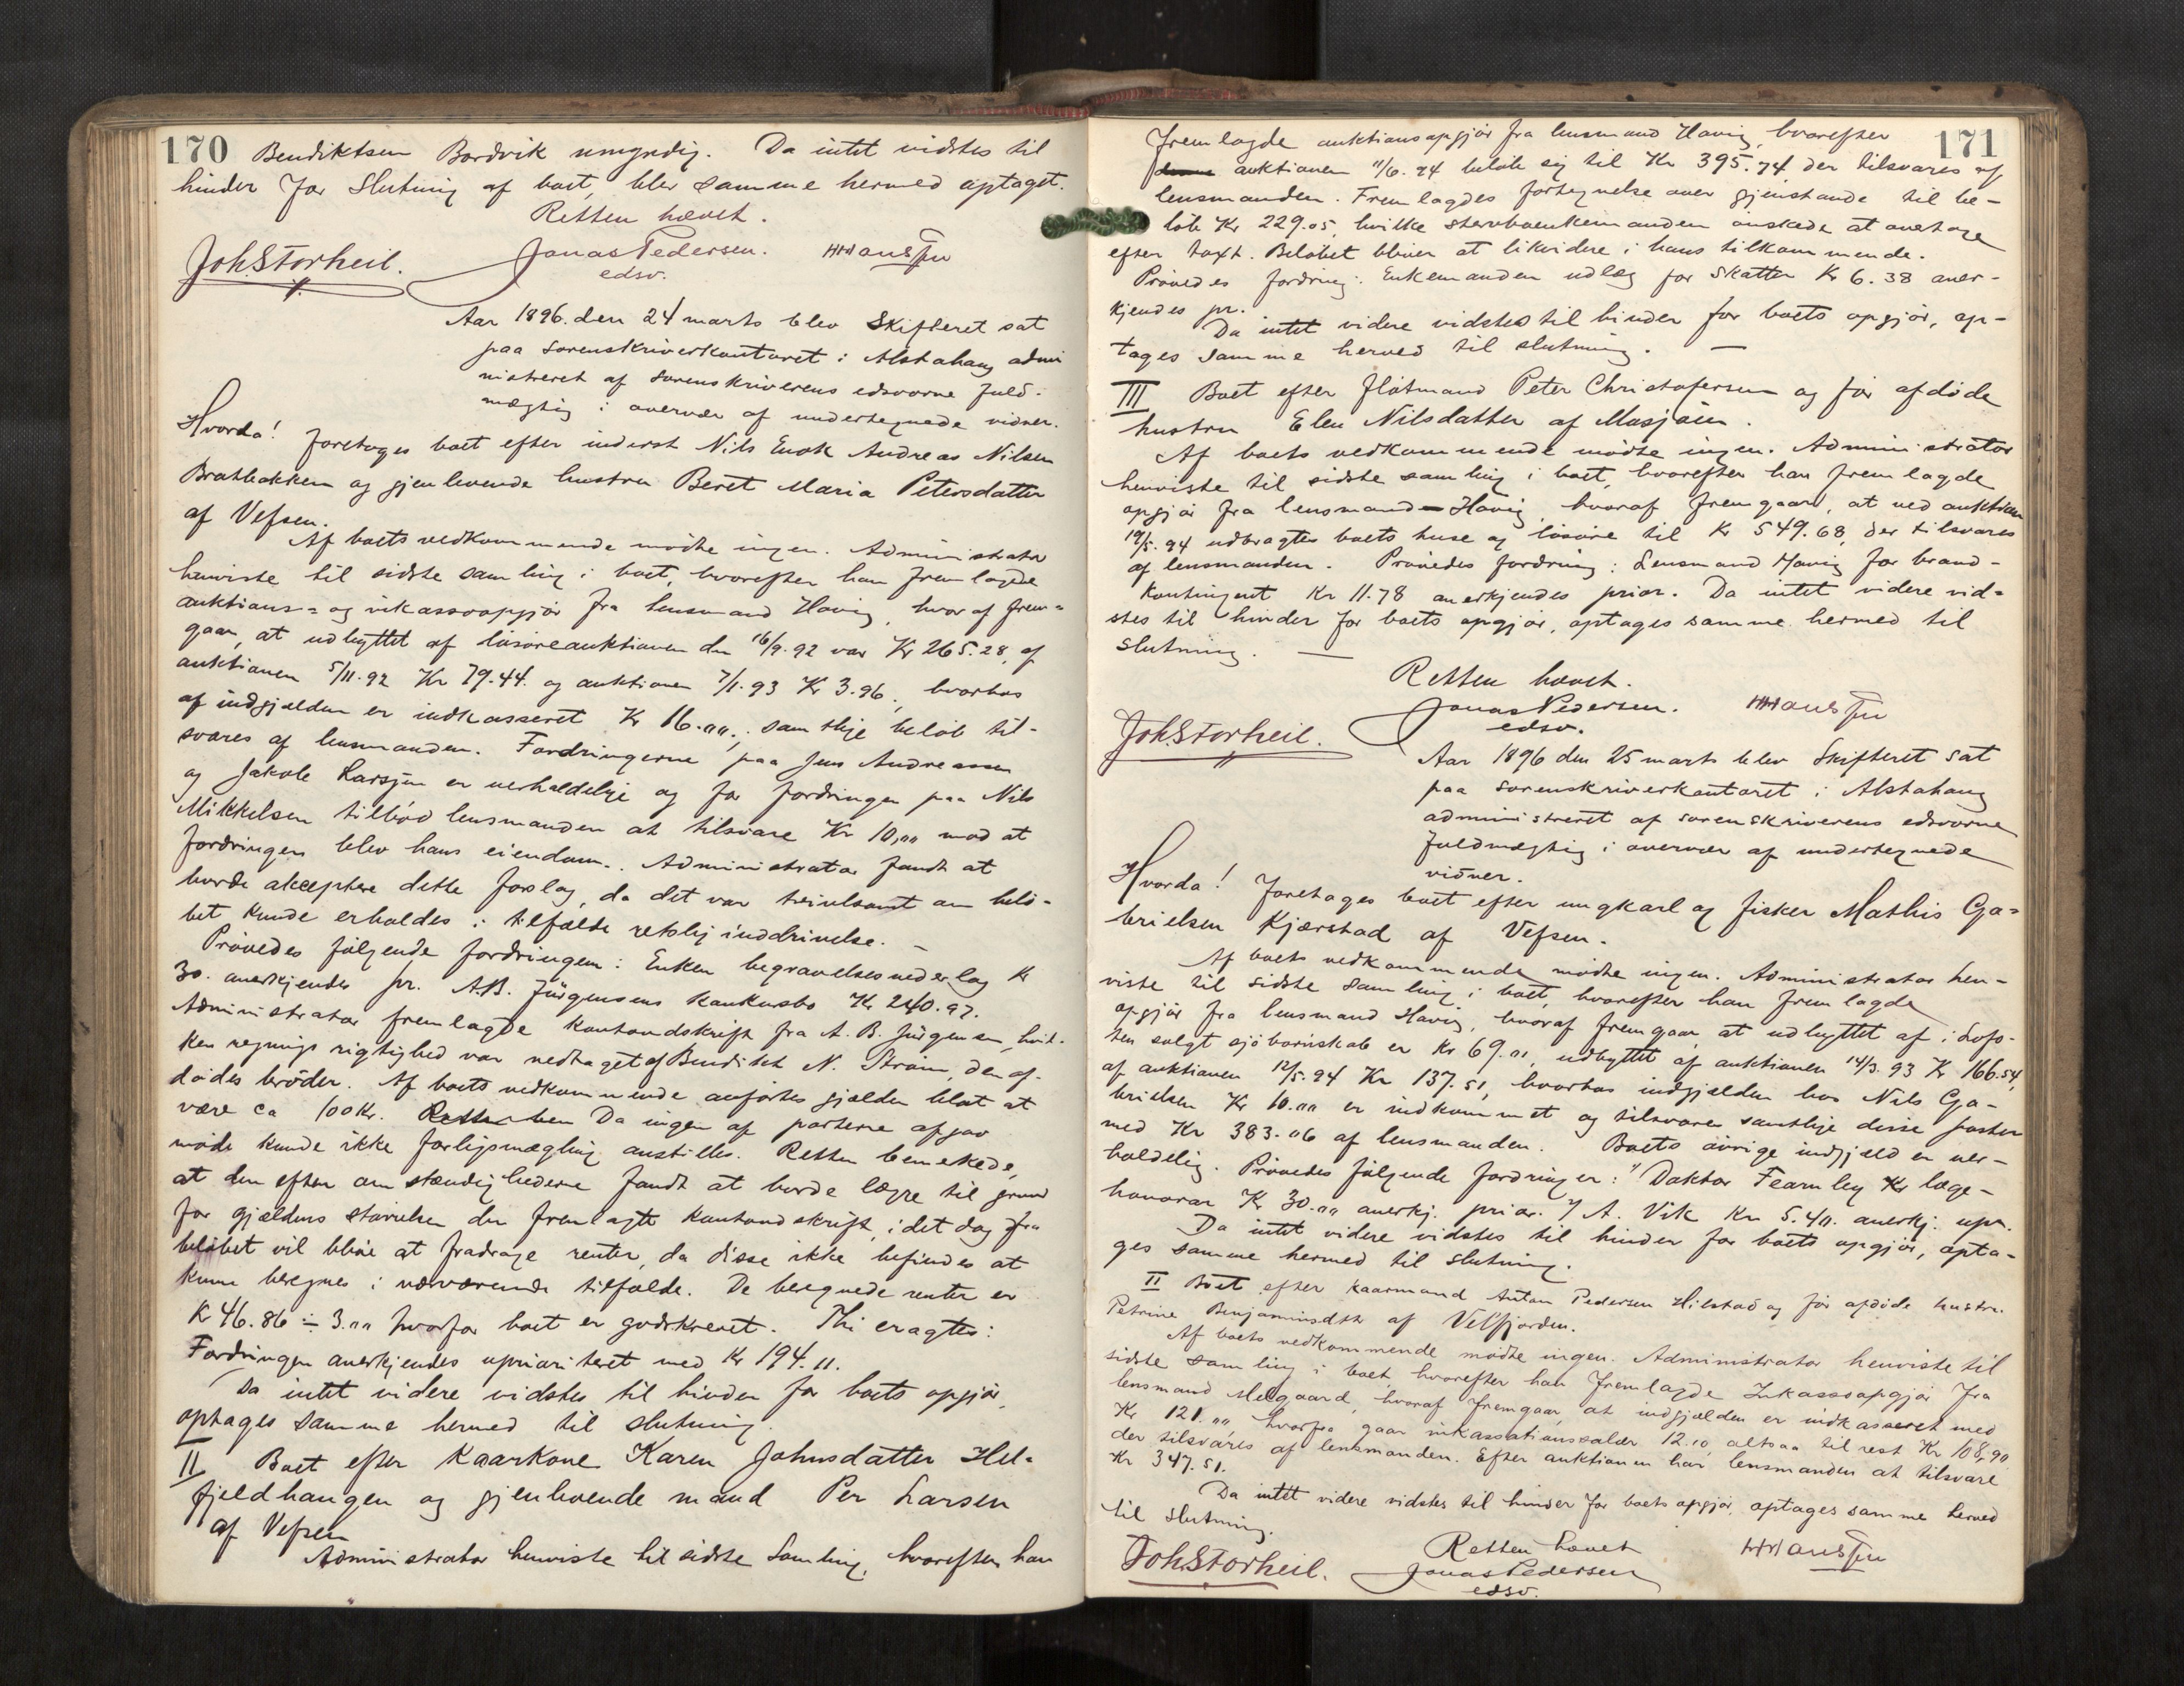 170
Bendiktsen Bordvik umyndig. Da intet vidstes til
hinder for Slutning af boet, blev samme hermed optaget.
Retten hævet.
Joh Storheil. Jonas Pedersen. HHansen
edsv.
Aar 1896. den 24 marts blev Skifteret sat
paa sorenskriverkontoret i Alstahaug admi
nistreret af sorenskriverens edsvorne fuld-
mægtig i overvær af undertegnede vidner.
Hvorda! foretoges boet efter inderst Nils Enok Andreas Nilsen
Bratbakken og gjenlevende hustru Beret Maria Petersdatter
af Vefsen.
Af boets vedkommende mødte ingen. Administrator
henviste til sidste samling i boet, hvorefter han fremlagde
auktions- og inkassoopgjør fra lensmand Havig, hvoraf frem-
gaar, at udbyttet af løsøreauktionen den 16/9.92 var Kr 265.28, af
auktionen 5/11.92 Kr 79.44. og auktionen 7/1.93 Kr 3.96, hvorhos
af indgjælden er indkasseret Kr 16.„„; samtlige beløb til-
svares af lensmanden. Fordringerne paa Jens Andreassen
og Jakob Larssen er uerholdelige og for fordringen paa Nils
Mikkelsen tilbød lensmanden at tilsvare Kr 10,„„ mod at
fordringen blev hans eiendom. Administrator fandt at
burde akceptere dette forslag, da det var tvivlsomt om belø-
bet kunde erholdes i tilfælde retslig inddrivelse. –
Prøvedes følgende fordringen: Enken begravelsesnederlag Kr
30. anerkjendes pr. A.B. Jürgensens konkursbo Kr 240.97.
Administrator fremlagde kontoudskrift fra A. B. Jürgensen, hvil-
ken regnings rigtighed var vedtaget af Benditek N. Strøm, den af-
dødes broder. Af boets vedkommende anførtes gjælden blot at
være ca 100 Kr. Da ingen af parterne afgav
møde kunde ikke forligsmægling anstilles. Retten bemerkede,
at den efter omstændighederne fandt at burde lægge til grund
for gjældens størrelse den fremlagte kontoudskrift, idet dog fra
beløbet vil blive at fradrage renter, da disse ikke befindes at
kunne beregnes i nærværende tilfælde. De beregnede renter er
Kr 46.86 ÷ 3.„„ hvorfor boet er godskrevet. Thi eragtes:
Fordringen anerkjendes uprioriteret med Kr 194.11.
Da intet videre vidstes til hinder for boets opgjør,
optages samme hermed til slutning.
II Boet efter Kaarkone Karen Johnsdatter Hel-
fjeldhaugen og gjenlevende mand Per Larsen
af Vefsen
Administrator henviste til sidste Samling, hvorefter han
171
fremlagde auktionsopgjør fra lensmand Havig, hvorefter
auktionen 11/6.94 beløb sig til Kr 395.74 der tilsvares af
lensmanden. Fremlagdes fortegnelse over gjenstande til be-
løb Kr 229.05, hvilke stervboenkemanden ønskede at overtage
efter taxt. Beløbet bliver at likvidere i hans tilkommende.
Prøvedes fordring: Enkemanden udlæg for Skatter Kr 6.38 aner-
kjendes pr.
Da intet videre vidstes til hinder for boets opgjør, op-
tages samme herved til slutning. —
III Boet efter flötmand Peter Christofersen og før afdöde
hustru Elen Nilsdatter af Mosjøen.
Af boets vedkommende mødte ingen. Administrator
henviste til sidste samling i boet, hvorefter han fremlagde
opgjør fra lensmand Havig, hvoraf fremgaar, at ved auktion
19/5.94 udbragtes boets huse og løsøre til Kr 549.68, der tilsvares
af lensmanden. Prøvedes fordring: Lensmand Havig for brand-
kontingent Kr 11.78 anerkjendes prior. Da intet videre vid-
stes til hinder for boets opgjør, optages samme hermed til
slutning. —
Retten hævet.
Joh Storheil. Jonas Pedersen. HHansen
edsv.
Aar 1896 den 25 marts blev Skifteret sat
paa sorenskriverkontoret i Alstahaug
administreret af sorenskriverens edsvorne
fuldmægtig i overvær af undertegnede
vidner.
Hvorda! foretages boet efter ungkarl og fisker Mathis Ga-
brielsen Kjærstad af Vefsen.
Af boets vedkommende mødte ingen. Administrator hen-
viste til sidste samling i boet, hvorefter han fremlagde
opgjør fra lensmand Havig, hvoraf fremgaar, at udbyttet af i Lofo-
ten solgt sjøbornskab er Kr 69.„, udbyttet af auktionen 14/3.93 Kr 166.54,
af auktionen 12/5.94 Kr 137.51, hvorhos indgjælden hos Nils Ga-
brielsen Kr 10.„„ er indkommet og tilsvares samtlige disse poster
med Kr 383.06 af lensmanden. Boets øvrige indgjæld er uer-
holdelig. Prøvedes følgende fordringer: Doktor Fearnley Kr læge-
honorar Kr 30.„„ anerkj. prior. A. Vik Kr 5.40. anerkj. upr.
Da intet videre vidstes til hinder for boets opgjør, opta-
ges samme hermed til slutning.
II Boet efter kaarmand Anton Pedersen Hilstad og før afdøde hustru
Petrine Benjaminsdtr af Velfjorden.
Af boets vedkommende mødte ingen. Administrator henviste til
sidste samling i boet, hvorefter han fremlagde Inkassoopgjør fra
lensmand Melgaard, hvoraf fremgaar, at indgjælden er indkasseret med
Kr 121.„„ hvorfra gaar inkassationssalær 12.10, altsaa til rest Kr 108,90
der tilsvares af lensmanden. Efter auktionen har lensmanden at tilsvare
Kr 347.51.
Da intet videre vidstes til hinder for boets opgjør, optages samme herved
til slutning.
Retten hævet
Joh Storheil. Jonas Pedersen HHansen
edsv.